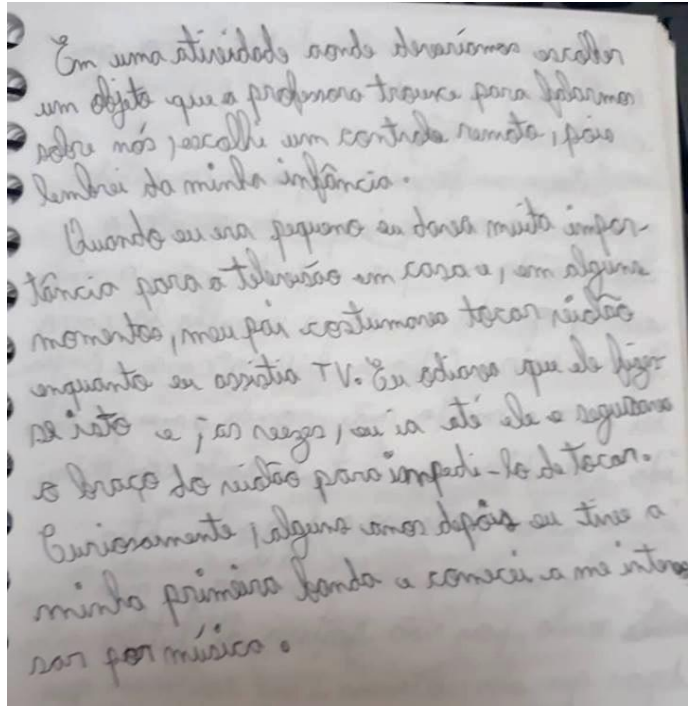 Em uma atividade aonde deveríamos escolher
um objeto que a professora trouxe para falarmos
sobre nós, escolhi um controle remoto, pois
lembrei da minha infância.
Quando eu era pequeno eu dava muita impor-
tância para a televisão em casa e, em alguns
momentos, meu pai costumava tocar violão
enquanto eu assistia TV. Eu odiava que ele fizes-
se isto e, as vezes, eu ia até ele e segurava
o braço do violão para impedi-lo de tocar.
Curiosamente, alguns anos depois eu tive a
minha primeira banda e comecei a me interes
sar por música.